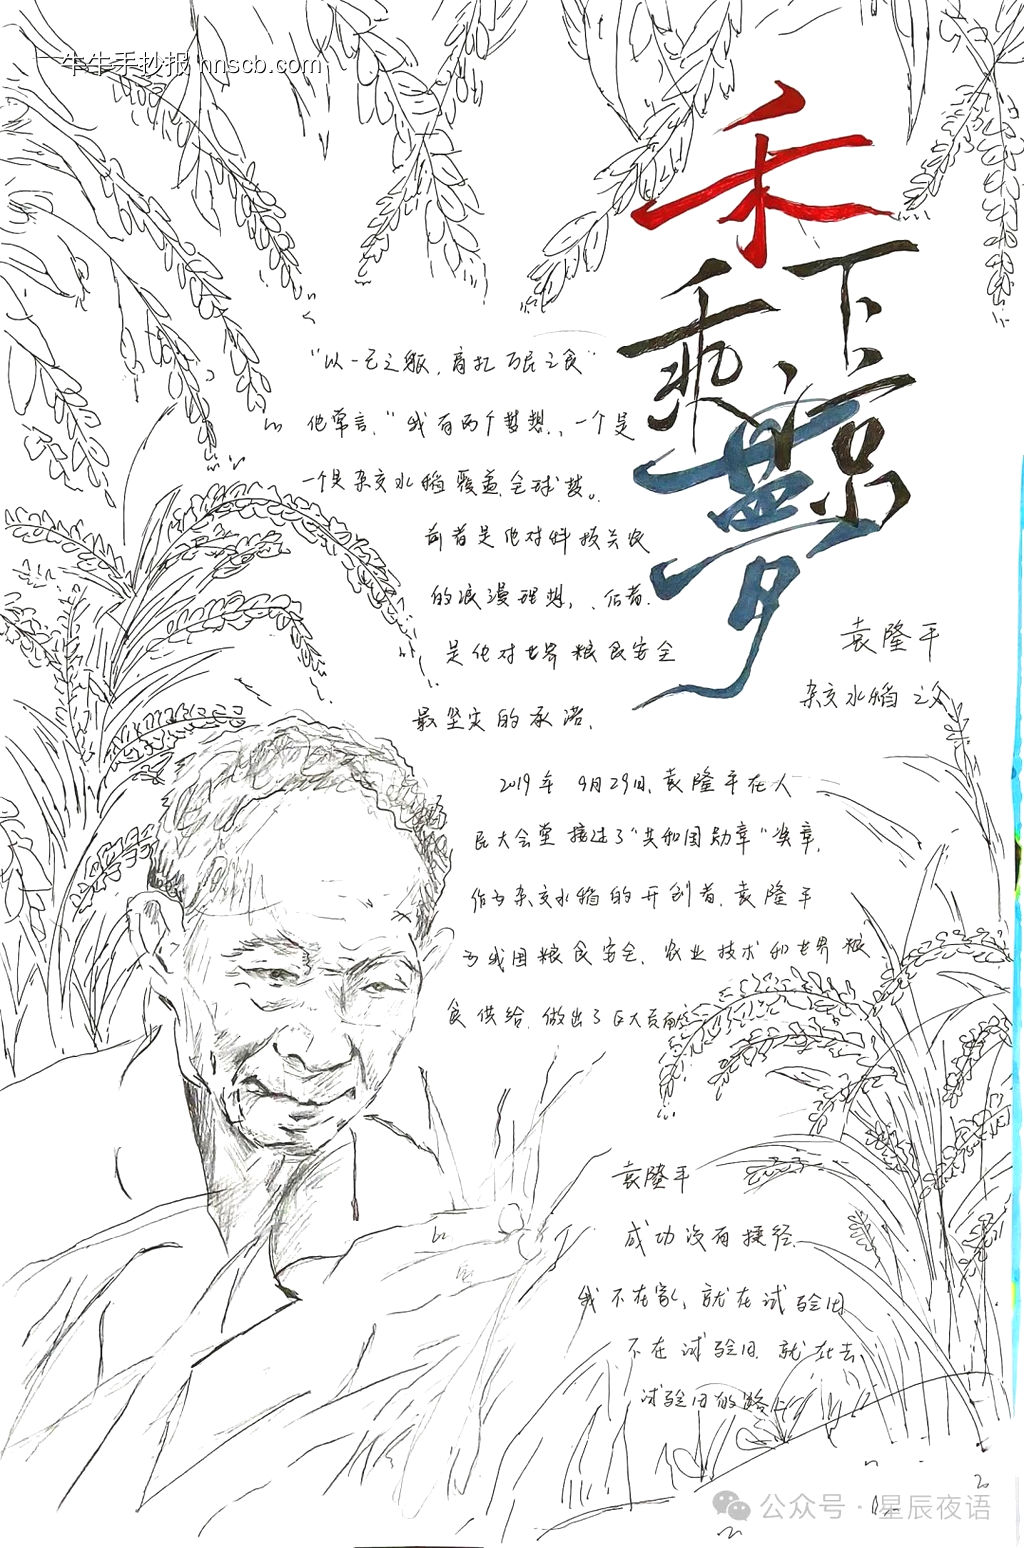 牛牛手抄报 nnscb.com
禾下乘凉梦
“以一己之躯，肩扛万民之食”
他常言，“我有两个梦想，一个是
一个是杂交水稻覆盖全球梦。
前者是他对科技兴农
的浪漫理想，后者
是他对世界粮食安全
最坚实的承诺.
袁隆平
杂交水稻之父
2019年 9月29日，袁隆平在人
民大会堂接过了“共和国勋章”奖章，
作为杂交水稻的开创者，袁隆平
为我国粮食安全，农业技术和世界粮
食供给，做出了巨大贡献
袁隆平
成功没有捷径
我不在家，就在试验田
不在试验田，就在去
试验田的路上
公众号·星辰夜语